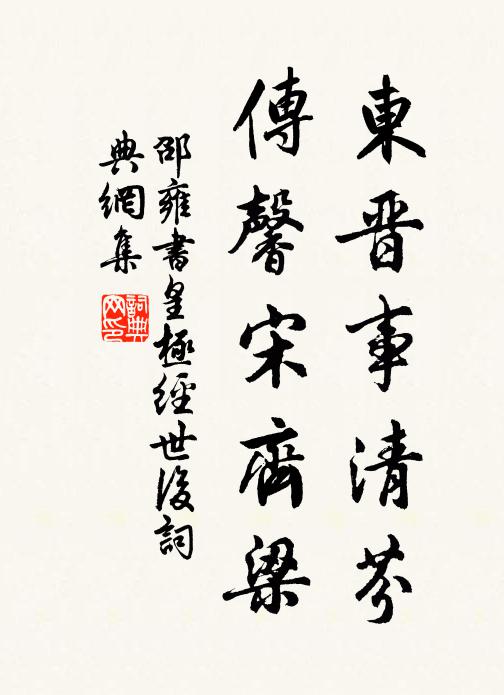 東晋事清芬
傳馨宋齊梁
邵雍書皇極經世後詞
典網集
詞典网印